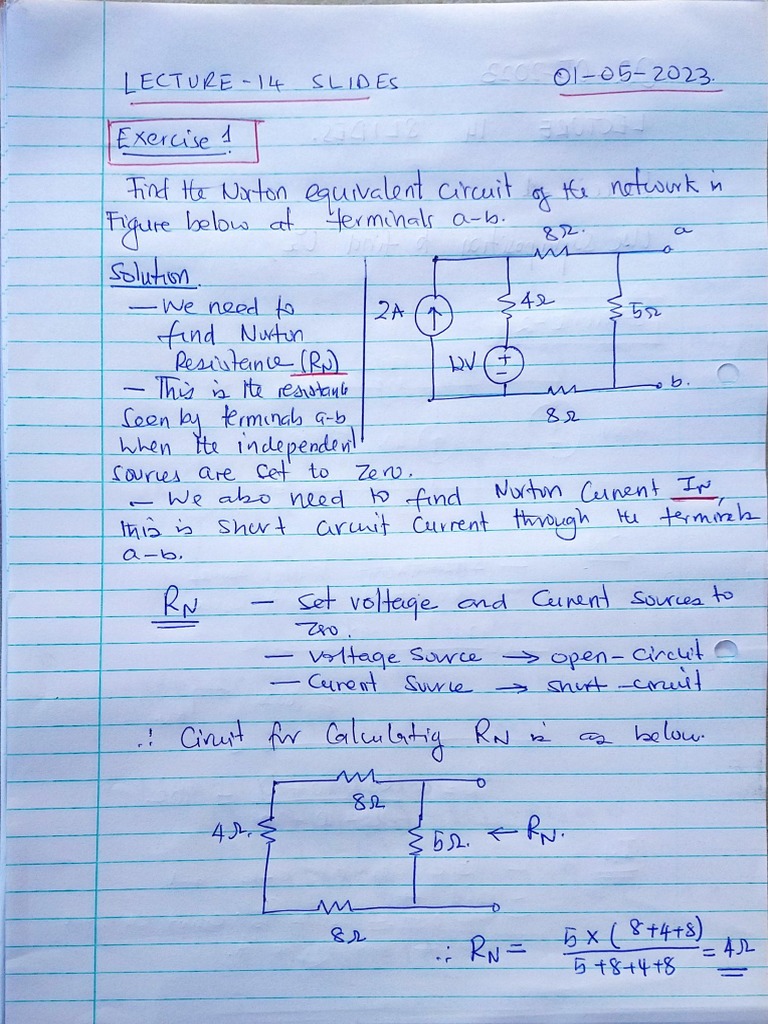 LECTURE-14 SLIDES
01-05-2023.
Exercise 1
Find the Norton equivalent circuit of the network in
Figure below at terminals a-b.
Solution
— We need to
find Norton
Resistance (RN)
— This is the resistance
seen by terminals a-b
when the independent
sources are set to zero.
8Ω.
a
2A
4Ω
5Ω
12V
+
−
b.
8Ω
— We also need to find Norton Current IN,
this is short circuit current through the terminals
a-b.
RN — Set voltage and current sources to
zero.
— voltage source → open-circuit
— Current source → short-circuit
∴ Circuit for Calculating RN is as below.
8Ω
4Ω.
5Ω. ← RN.
8Ω
∴ RN = 5 x (8+4+8) / 5+8+4+8 = 4Ω